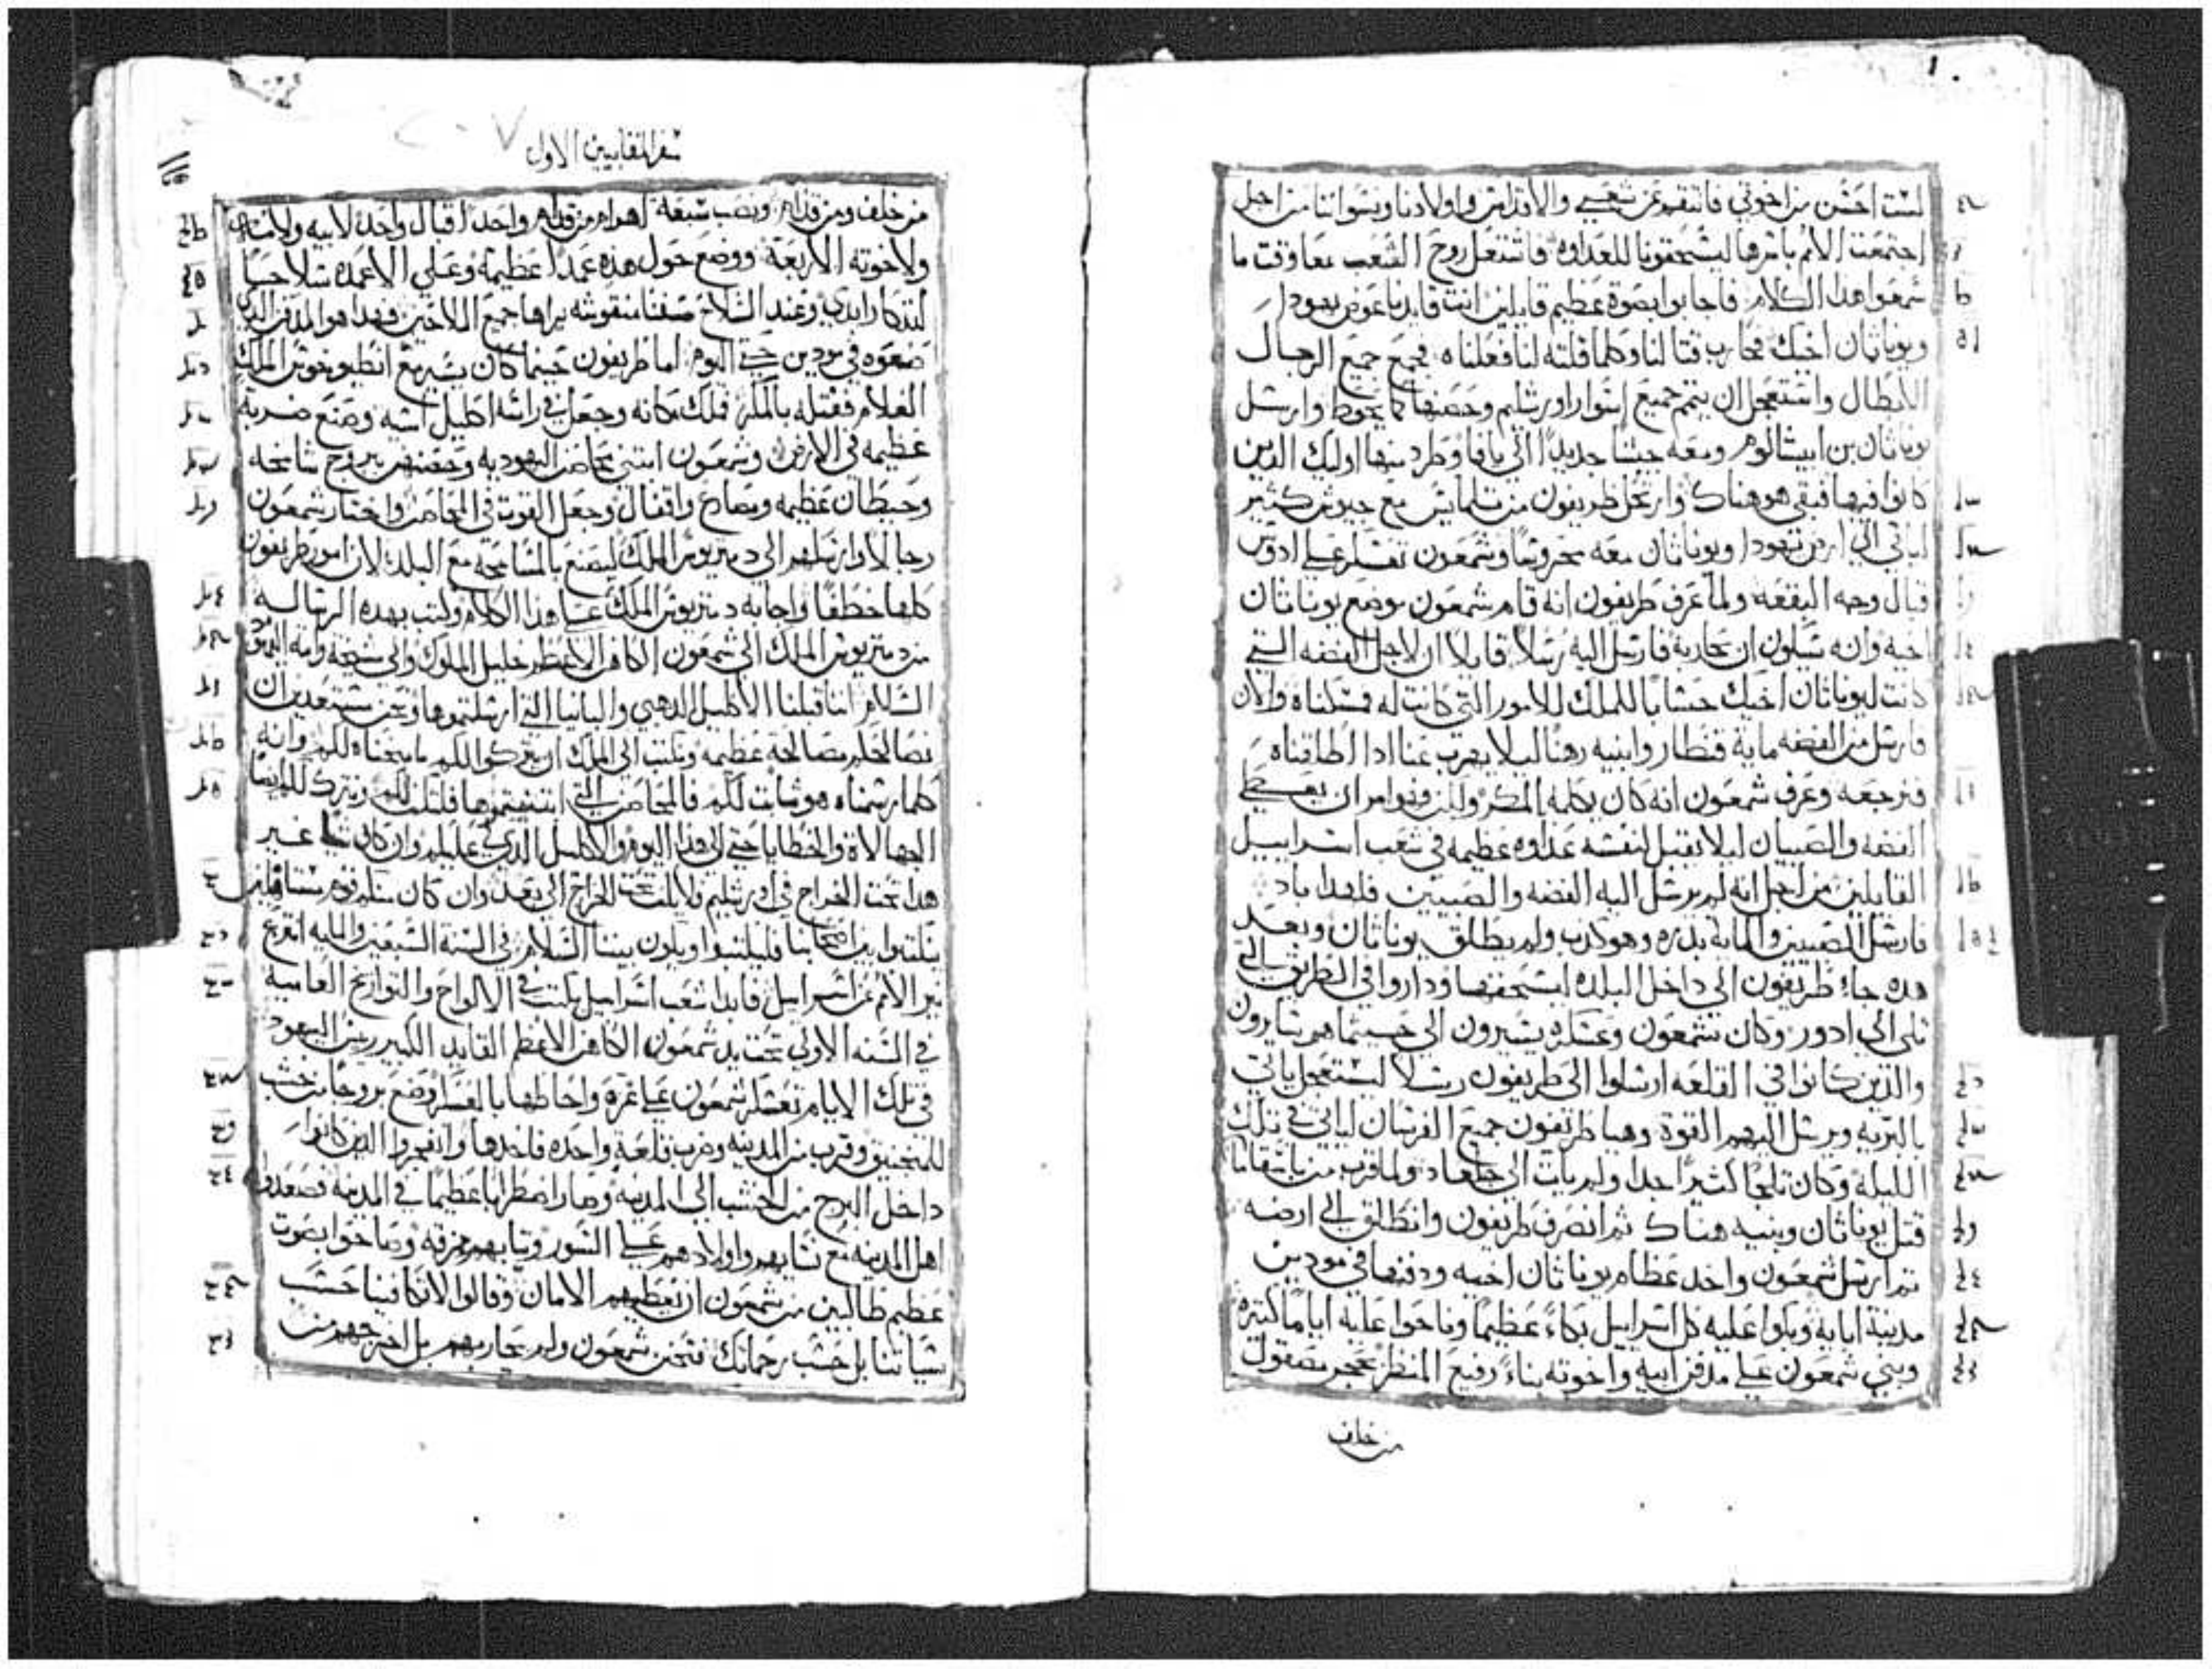 لست احسن من اخوتي فانتقم عن شعبي والاقداس واولادنا ونسواننا من اجل
اجتمعت الامم باسرها ليسحقونا للعداوه فاشتعل روح الشعب معا وقت ما
سمعوا هدا الكلام فاجابوا بصوة عظيم قايلين انت قايدنا عوض يهودا
ويوناثان اخيك فحارب قتالنا وكلما قلته لنا فعلناه فجمع جميع الرجال
الابطال واستعجل ان يتمم جميع اسوار اورشليم وحصنها كما يحوط وارسل
يوناثان بن ابيشالوم ومعه جيشا جديدا الي يافا وطرد منها اوليك الدين
كانوا فيها فبقي هو هناك وارتحل طريفون من تلمايس مع جيوش كتير
لياتي الي ارض يهودا ويوناثان معه محروسا وشمعون تعسكر علي ادوس
قبال وجه البقعه ولما عرف طريفون انه قام شمعون موضع يوناثان
اخيه وانه سيكون ان يحاربه فارسل اليه رسلا قايلا ان لاجل الفضه التي
كانت ليوناثان اخيك حسابا للملك للامور التي كانت له مسكناه والان
فارسل من الفضه ماية قنطار وابنيه رهنا ليلا يهرب عنا ادا اطلقناه
فنرجعه وعرف شمعون انه كان يكلمه بالمكر ولكن فهو امر ان يعطي
الفضه والصبيان ليلا يقبل لنفسه عداوه عظيمه في شعب اسراييل
القايلين من اجل انه لم يرسل اليه الفضه والصبيين فلهدا باد
فارسل الصبيين والماية بدره وهو كدب ولم يطلق يوناثان وبعد
هده جاء طريفون الي داخل البلده ليسحقها وداروا في الطريق التي
تلي الي ادور وكان شمعون وعسكره يسيرون الي حيثما هم سايرون
والذين كانوا في القلعه ارسلوا الي طريفون رسلا ليستعجل ياتي
بالبريه ويرسل اليهم القوة وهيا طريفون جميع الفرسان لياتي في تلك
الليله وكان تلجا كثيرا جدا ولم يات الي جلعاد ولما قرب من باسقاما
قتل يوناثان وبنيه هناك ثم انصرف طريفون وانطلق الي ارضه
ثم ارسل شمعون واخد عظام يوناثان اخيه ودفنها في مودين
مدينة ابايه وبكوا عليه كل اسراييل بكاء عظيما وناحوا عليه اياما كتيره
وبني شمعون علي مدفن ابيه واخوته بناء رفيع المنظر بحجر مصقول
من خلف
سفر المقابيين الاول
من خلف ومن قدام ونصب سبعة اهرام من قدام واحدا قبال واحد لابيه ولامه
ولاخوته الاربعة ووضع حول هده عمدا عظيمة وعلي الاعمده سلاحا
لتدكار ابدي وعند السلاح سفنا منقوشه يراها جميع الملاحين فهدا هو المدفن الدي
صنعوه في مودين حتي اليوم اما طريفون حينما كان يسير مع انطيوخوس الملك
الغلام فقتله بالمكر فملك مكانه وجعل في راسه اكليل اسيه وصنع ضربة
عظيمه في الارض وشمعون ابتني محاصن اليهوديه وحصنهم ببروج شامخه
وحيطان عظيمه ومصاريع واقفال وجعل القوت في المحاصن واختار شمعون
رجالا وارسلهم الي دمتريوس الملك ليصنع بالمسامحه مع البلد لان امور طريفون
كلها خطفا واجابه دمتريوس الملك علي هدا الكلام وكتب بهده الرساله
من دمتريوس الملك الي شمعون الكاهن الاعظم خليل الملوك والي شيخة وامة اليهود
السلام اننا قبلنا الاكليل الدهبي والبانيا التي ارسلتموها ونحن مستعدين ان
نصالحكم مصالحة عظيمه ونكتب الي الملك ان يتركوا لكم ما سمحناه لكم وانه
كلما رسمناه هو ثابت لكم فالمحاصن التي ابتنيتموها فلتكن لكم ونترك لكم ايضا
الجهالاة والخطايا حتي الي هدا اليوم والاكليل الدي لي عليكم وان كان شيا غير
هدا تحت الخراج في اورشليم فلا يكن تحت الخراج الي بعد وان كان منكم قوم مستاهلين
يكتبوا بين اصحابنا فليكتبوا ويكون بيننا السلام في السنة السبعين والمايه انقرع
نير الامم عن اسراييل فابدا شعب اسراييل يكتب في الالواح والتواريخ العاميه
في السنه الاولي تحت يد شمعون الكاهن الاعظم القايد الكبير ريس اليهود
في تلك الايام تعسكر شمعون علي غزه واحاطها بالعسكر وضع بروجا من خشب
للمنجنيق وقرب من المدينه وضرب قلعة واحده فاخدها وانفجروا الدين كانوا
داخل البرج من الخشب الي المدينه وصار اضطرابا عظيما في المدينه فصعدوا
اهل المدينه مع نسايهم واولادهم علي السور وتيابهم ممزقه وصاحوا بصوت
عظيم طالبين من شمعون ان يعطيهم الامان وقالوا لا تكافينا حسب
سياتنا بل حسب رحماتك فتحنن شمعون ولم يحاربهم بل اخرجهم من